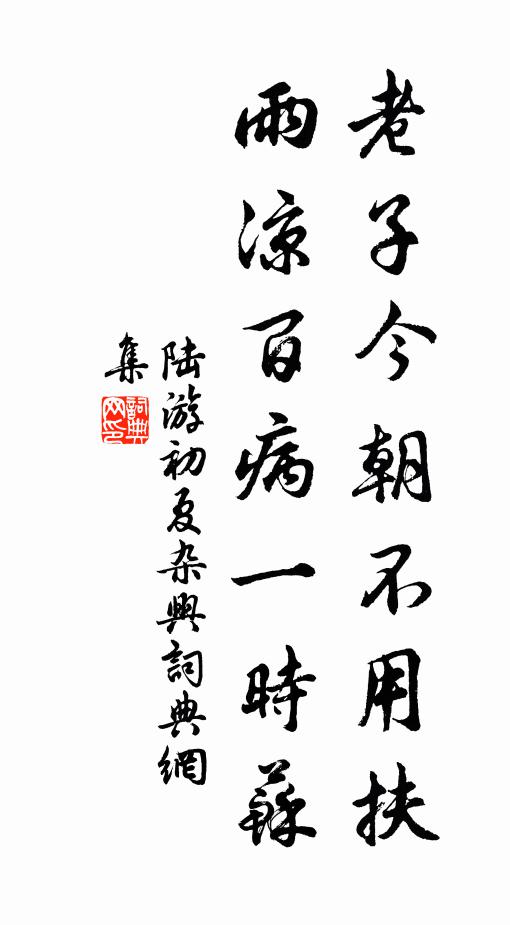 老子今朝不用扶
雨涼百病一時蘇
陆游初夏杂興詞典網
集
詞典
网印